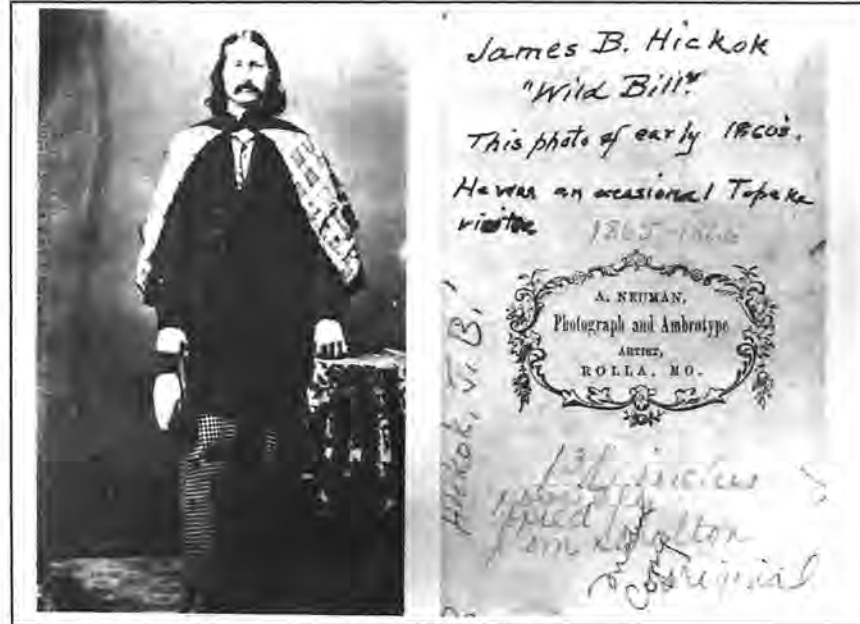 James B. Hickok
"Wild Bill"
This photo of early 1860's.
He was an occasional Topeka
visitor
1865-1866
A. NEUMAN,
Photograph and Ambrotype
ARTIST,
ROLLA, MO.
Hickok, J. B.
inches
original